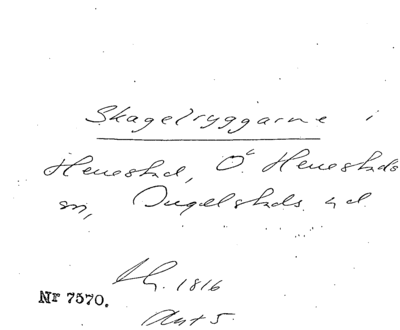 Skagelryggarne i
Herrestad, Ö. Herrestads
sn, Ingelstads hd.
Nr 7570.
1816